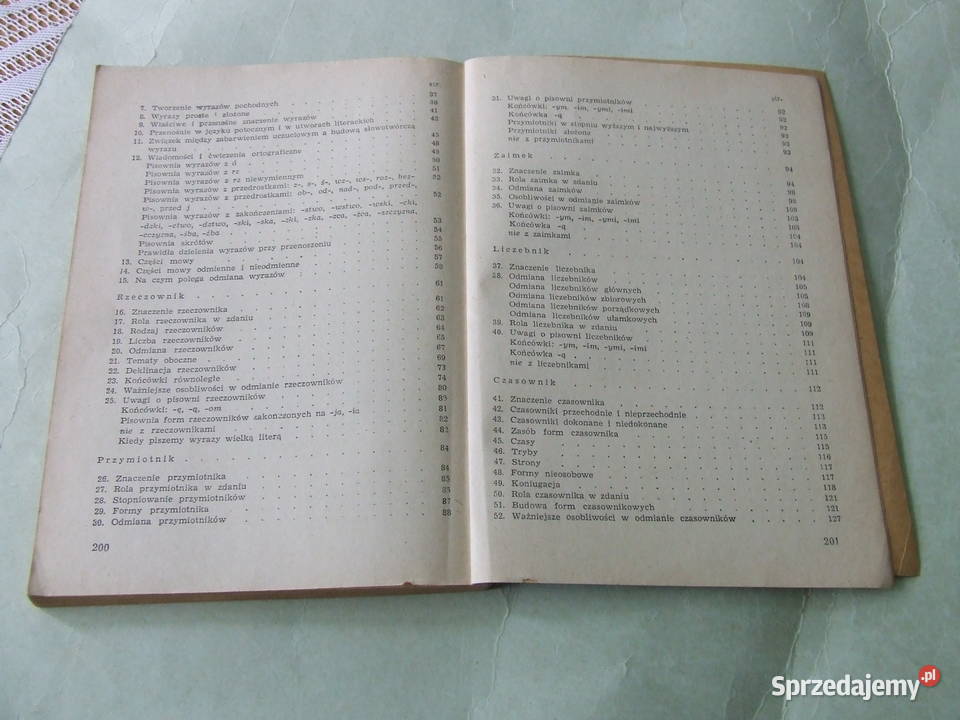 str.
7. Tworzenie wyrazów pochodnych . . . 37
8. Wyrazy proste i złożone . . . 38
9. Właściwe i przenośne znaczenie wyrazów . . . 41
10. Przenośnie w języku potocznym i w utworach literackich . . . 43
11. Związek między zabarwieniem uczuciowym a budową słowotwórczą
wyrazu . . . 45
12. Wiadomości i ćwiczenia ortograficzne . . . 48
Pisownia wyrazów z ó . . . 49
Pisownia wyrazów z rz . . . 50
Pisownia wyrazów z rz niewymiennym . . . 51
Pisownia wyrazów z przedrostkami: z-, s-, ś-, wz-, ws-, roz-, bez- 52
Pisownia wyrazów z przedrostkami: ob-, od-, nad-, pod-, przed-,
w-, przed j . . . 52
Pisownia wyrazów z zakończeniami: -stwo, -wstwo, -wski, -cki,
-dzki, -ctwo, -dztwo, -ski, -ska, -zki, -zka, -rca, -żca, -szczyzna,
-czyzna, -śba, -źba . . . 53
Pisownia skrótów . . . 54
Prawidła dzielenia wyrazów przy przenoszeniu . . . 55
13. Części mowy . . . 56
14. Części mowy odmienne i nieodmienne . . . 57
15. Na czym polega odmiana wyrazów . . . 59
Rzeczownik . . . 61
16. Znaczenie rzeczownika . . . 61
17. Rola rzeczownika w zdaniu . . . 62
18. Rodzaj rzeczowników . . . 63
19. Liczba rzeczowników . . . 64
20. Odmiana rzeczowników . . . 65
21. Tematy oboczne . . . 67
22. Deklinacja rzeczowników . . . 69
23. Końcówki równoległe . . . 73
24. Ważniejsze osobliwości w odmianie rzeczowników . . . 74
25. Uwagi o pisowni rzeczowników . . . 80
Końcówki: -ę, -ą, -om . . . 80
Pisownia form rzeczowników zakończonych na -ja, -ia . . . 81
nie z rzeczownikami . . . 82
Kiedy piszemy wyrazy wielką literą . . . 82
Przymiotnik . . . 84
26. Znaczenie przymiotnika . . . 84
27. Rola przymiotnika w zdaniu . . . 85
28. Stopniowanie przymiotników . . . 85
29. Formy przymiotnika . . . 87
30. Odmiana przymiotników . . . 88
200
str.
31. Uwagi o pisowni przymiotników
Końcówki: -ym, -im, -ymi, -imi . . . 92
Końcówka -ą . . . 92
Przymiotniki w stopniu wyższym i najwyższym . . . 92
Przymiotniki złożone . . . 93
nie z przymiotnikami . . . 93
Zaimek . . . 94
32. Znaczenie zaimka
33. Rola zaimka w zdaniu . . . 94
34. Odmiana zaimków . . . 98
35. Osobliwości w odmianie zaimków . . . 98
36. Uwagi o pisowni zaimków . . . 100
Końcówki: -ym, -im, -ymi, -imi . . . 103
Końcówka -ą . . . 103
nie z zaimkami . . . 104
Liczebnik . . . 104
37. Znaczenie liczebnika . . . 104
38. Odmiana liczebników . . . 104
Odmiana liczebników głównych . . . 105
Odmiana liczebników zbiorowych . . . 105
Odmiana liczebników porządkowych . . . 108
Odmiana liczebników ułamkowych . . . 109
39. Rola liczebnika w zdaniu . . . 109
40. Uwagi o pisowni liczebników . . . 109
Końcówki: -ym, -im, -ymi, -imi . . . 111
Końcówka -ą . . . 111
nie z liczebnikami . . . 111
Czasownik . . . 112
41. Znaczenie czasownika . . . 112
42. Czasowniki przechodnie i nieprzechodnie . . . 113
43. Czasowniki dokonane i niedokonane . . . 113
44. Zasób form czasownika . . . 115
45. Czasy . . . 115
46. Tryby . . . 116
47. Strony . . . 117
48. Formy nieosobowe . . . 117
49. Koniugacja . . . 118
50. Rola czasownika w zdaniu . . . 121
51. Budowa form czasownikowych . . . 121
52. Ważniejsze osobliwości w odmianie czasowników . . . 127
201
Sprzedajemy.pl